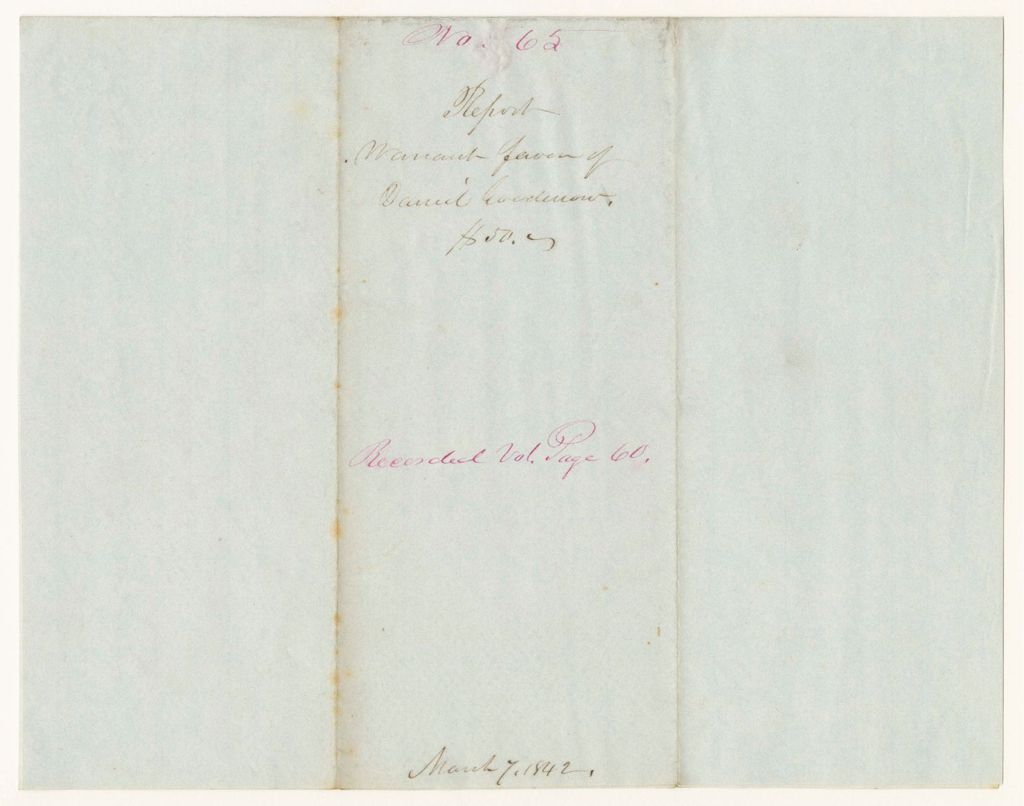 No. 65
Report
Warrant favor of
Daniel Goodenow.
$50.
Recorded Vol. Page 60.
March 7, 1842.